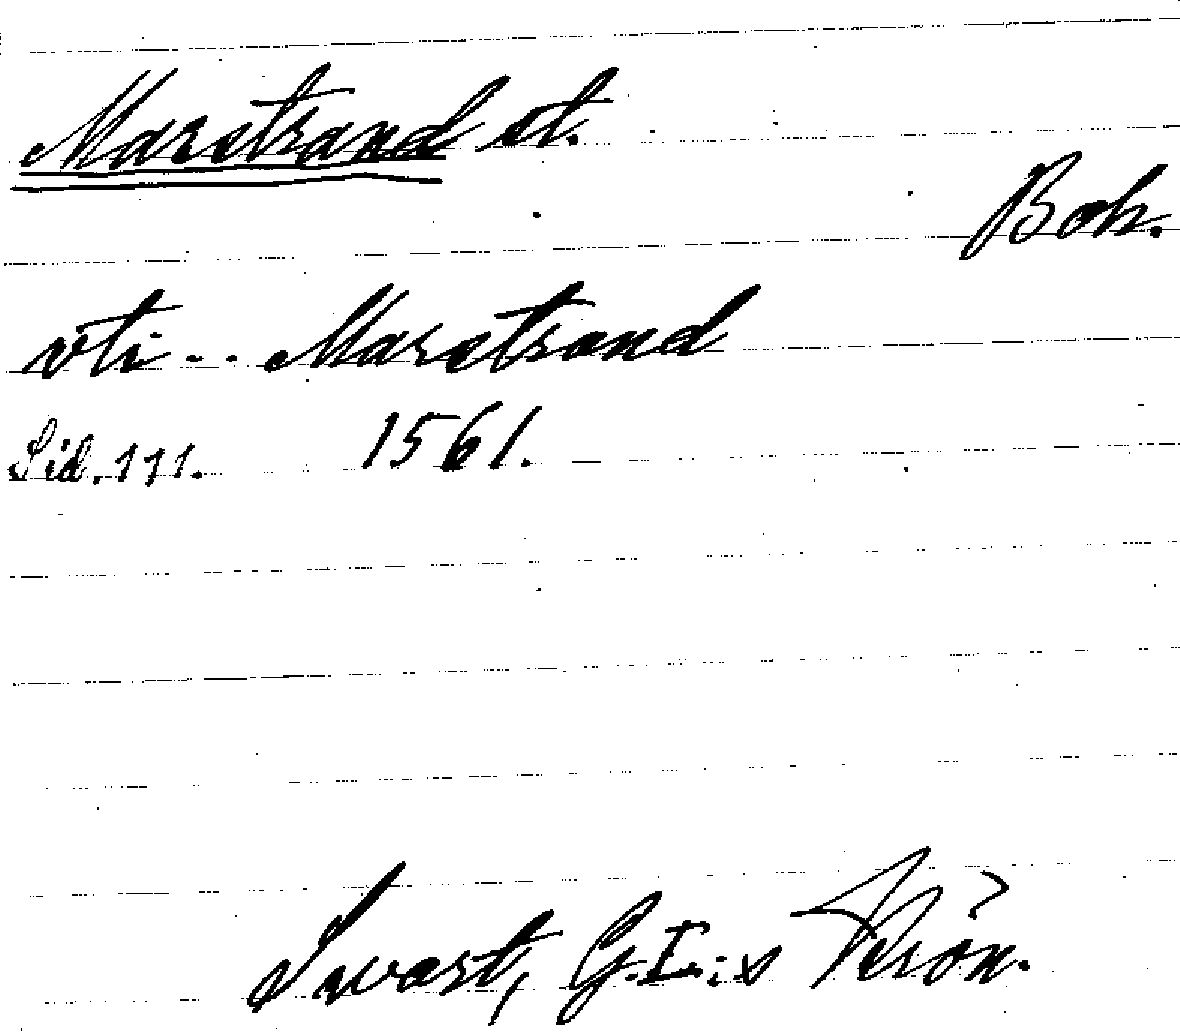 Marstrand st.
Boh.
vti - - Marstrand
Sid. 111. 1561.
Svart, G. I:s Krön.